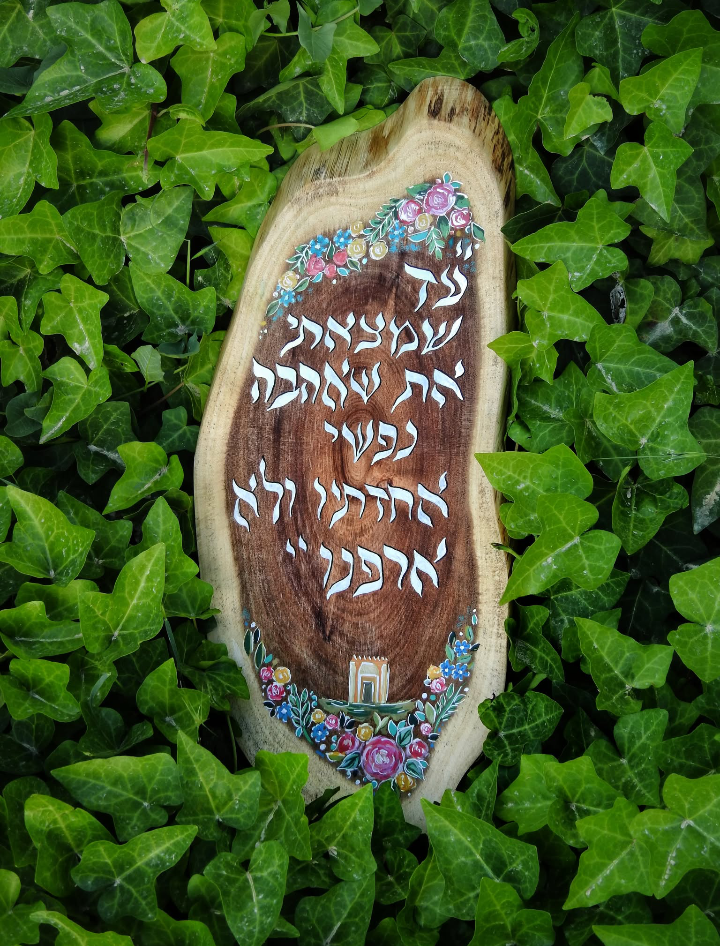 "עד
שמצאתי
את שאהבה
נפשי
אחזתיו ולא
ארפנו"